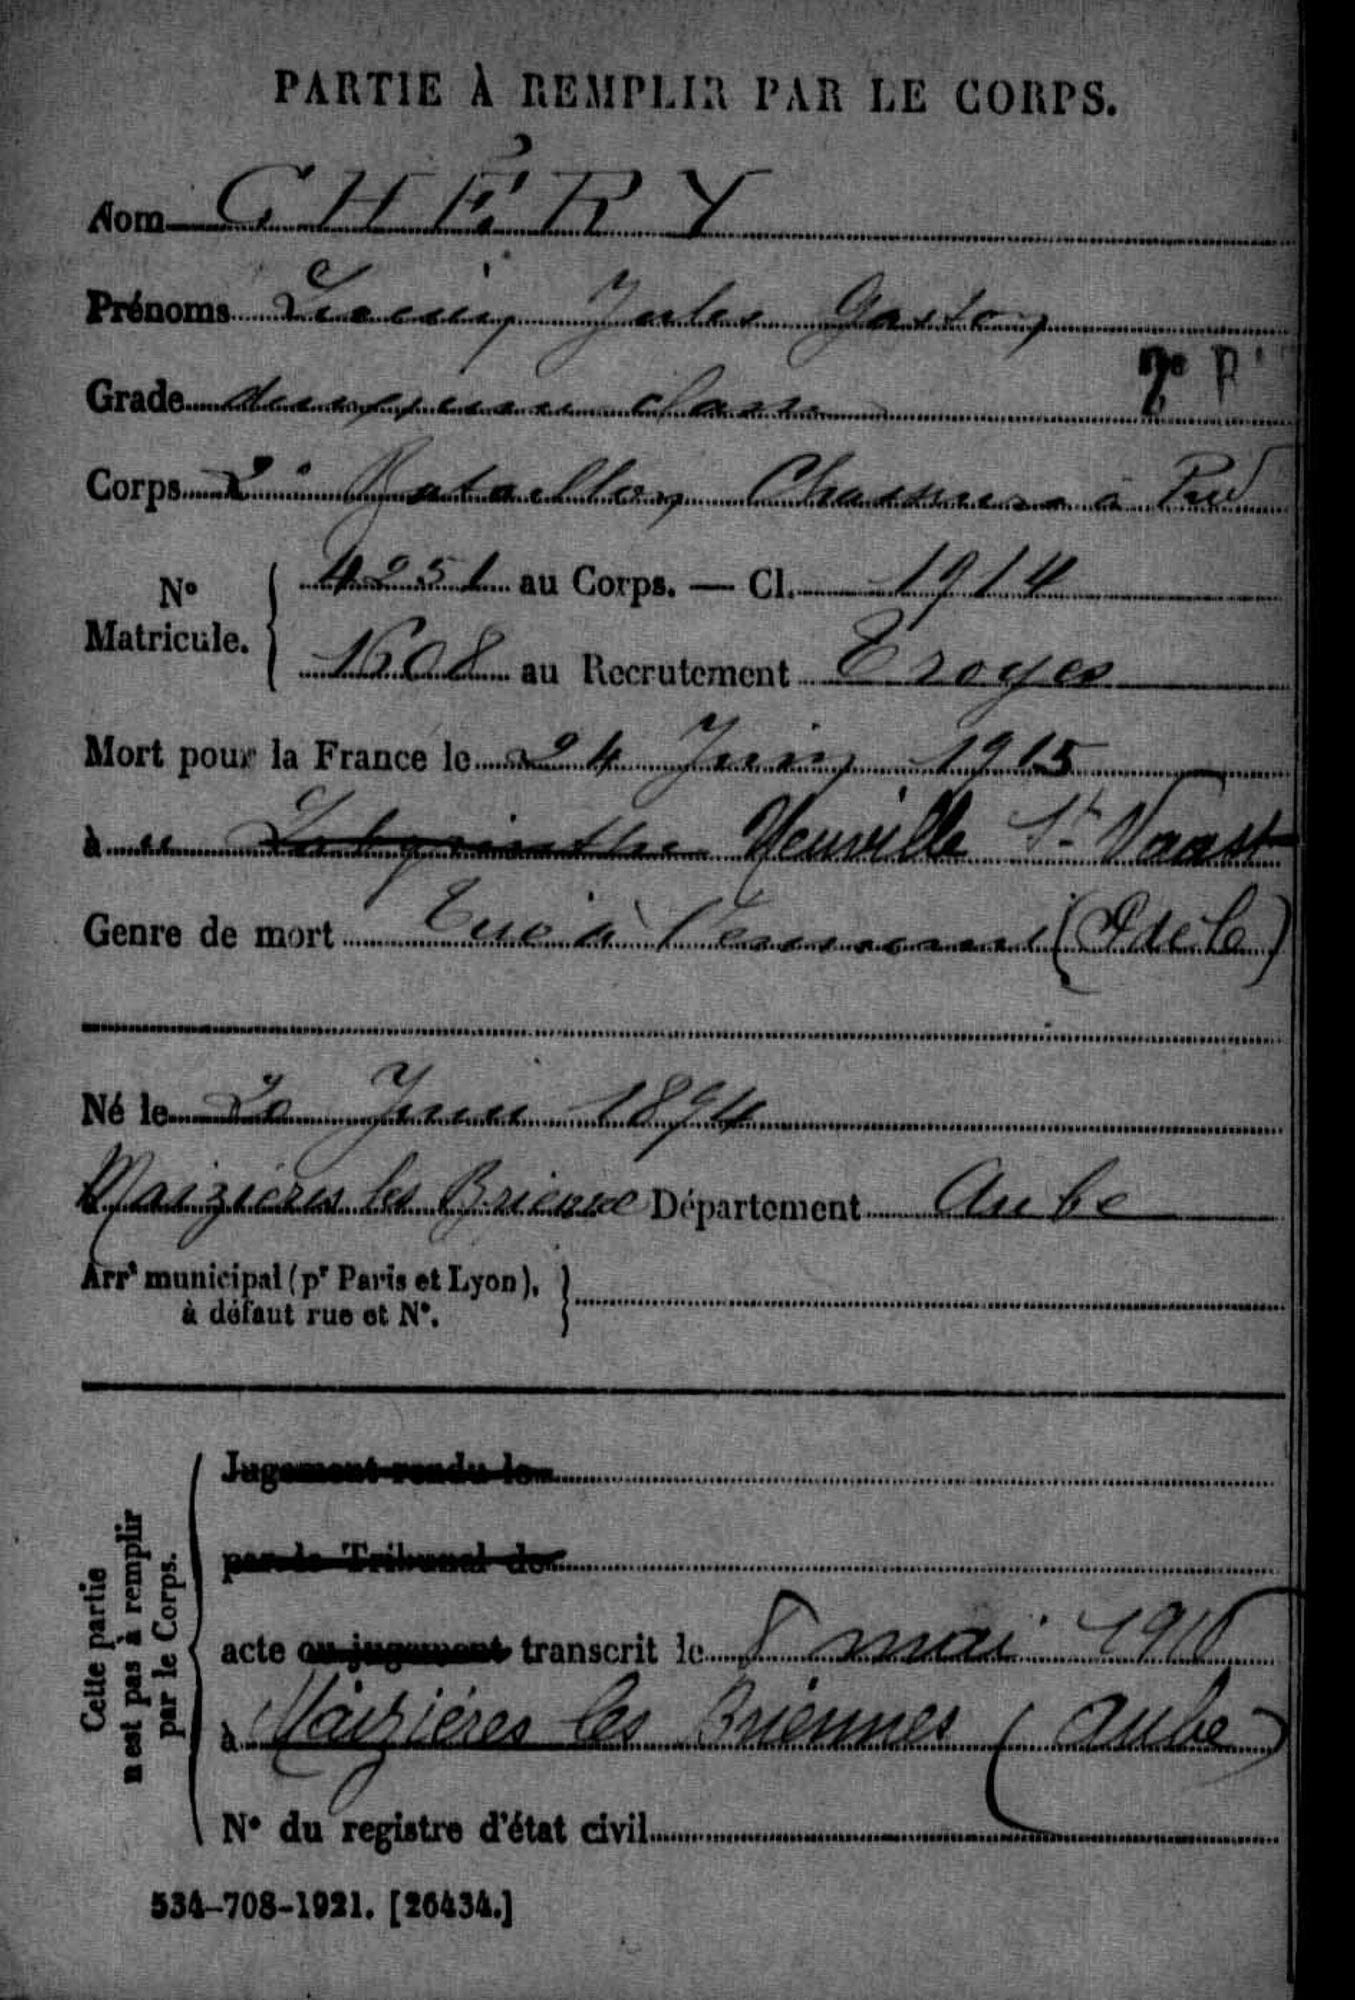 PARTIE À REMPLIR PAR LE CORPS.
Nom CHÉRY
Prénoms Jules Gaston
Grade deuxième classe 2e
Corps Bataillon Chasseurs à Pied
No Matricule. 4251 au Corps. — Cl. 1914
1608 au Recrutement Troyes
Mort pour la France le 24 Juin 1915
à Labyrinthe Neuville St Vaast
Genre de mort Tué à l'ennemi (P de C)
Né le 20 Juin 1894
Maizières les Brienne Département Aube
Arrt municipal (pr Paris et Lyon),
à défaut rue et No.
Cette partie
n'est pas à remplir
par le Corps.
Jugement rendu le
par le Tribunal de
acte ou jugement transcrit le 8 mai 1916
à Maizières les Briennes (Aube)
No du registre d'état civil
534-708-1921. [26434.]